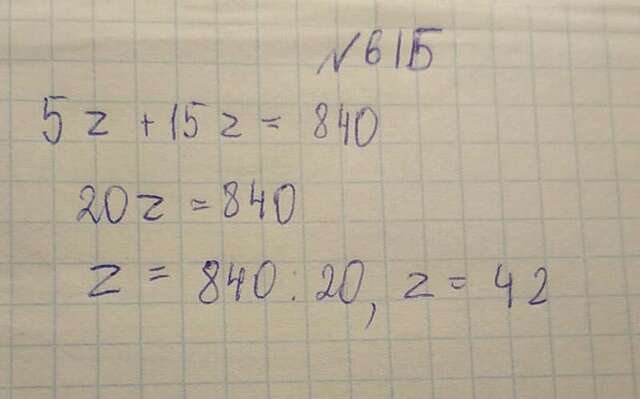 №61Б
5z + 15z = 840
20z = 840
z = 840 : 20, z = 42